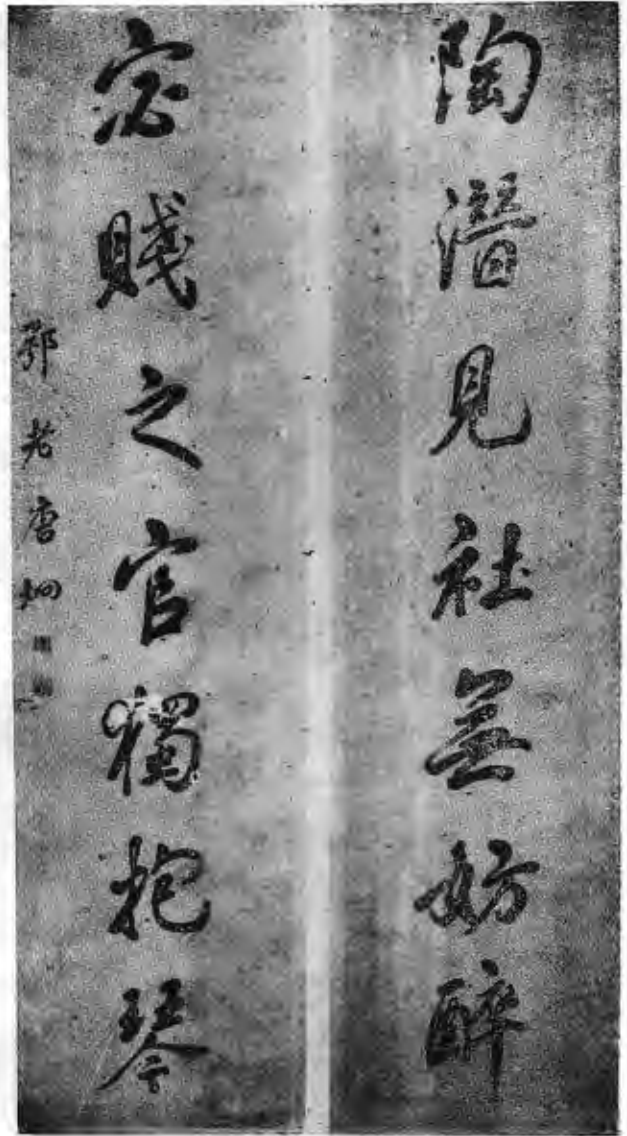 陶潛見社無妨醉
宓賤之官獨抱琴
鄂老唐炯